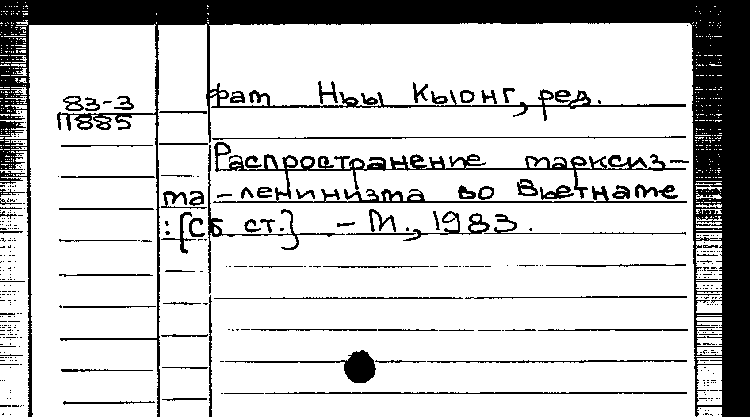 83-3
11885
Фам Ныы Кыонг, ред.
Распространение марксиз-
ма-ленинизма во Вьетнаме
: [Сб. ст.] - М., 1983.